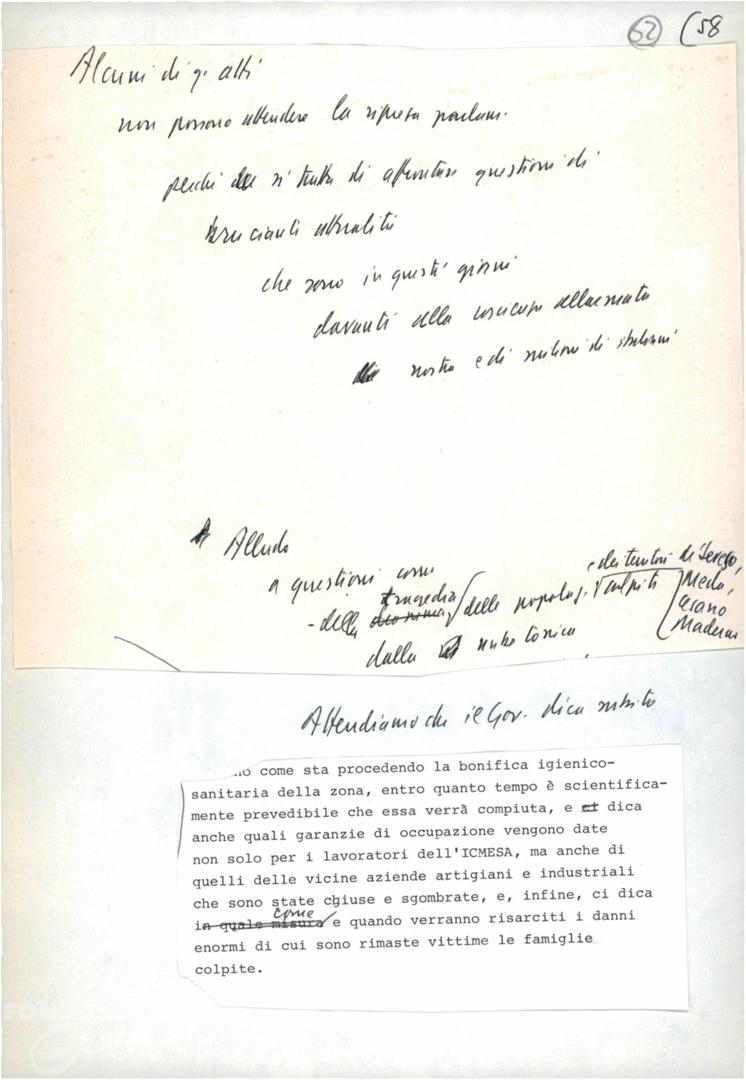 52 (58
Alcuni di q. atti
non possono attendere la ripresa parlam.
perché si tratta di affrontare questioni di
brucianti attualità
che sono in questi giorni
davanti alla coscienza allarmata
nostra e di milioni di italiani
Alludo
a questioni come
- della tragedia delle popolaz. e dei territori di Seveso,
colpiti Meda,
Cesano
Maderno
dalla nube tossica
Attendiamo che il Gov. dica subito
come sta procedendo la bonifica igienico-
sanitaria della zona, entro quanto tempo è scientifica-
mente prevedibile che essa verrà compiuta, e et dica
anche quali garanzie di occupazione vengono date
non solo per i lavoratori dell'ICMESA, ma anche di
quelli delle vicine aziende artigiani e industriali
che sono state chiuse e sgombrate, e, infine, ci dica
come
in quale misura e quando verranno risarciti i danni
enormi di cui sono rimaste vittime le famiglie
colpite.